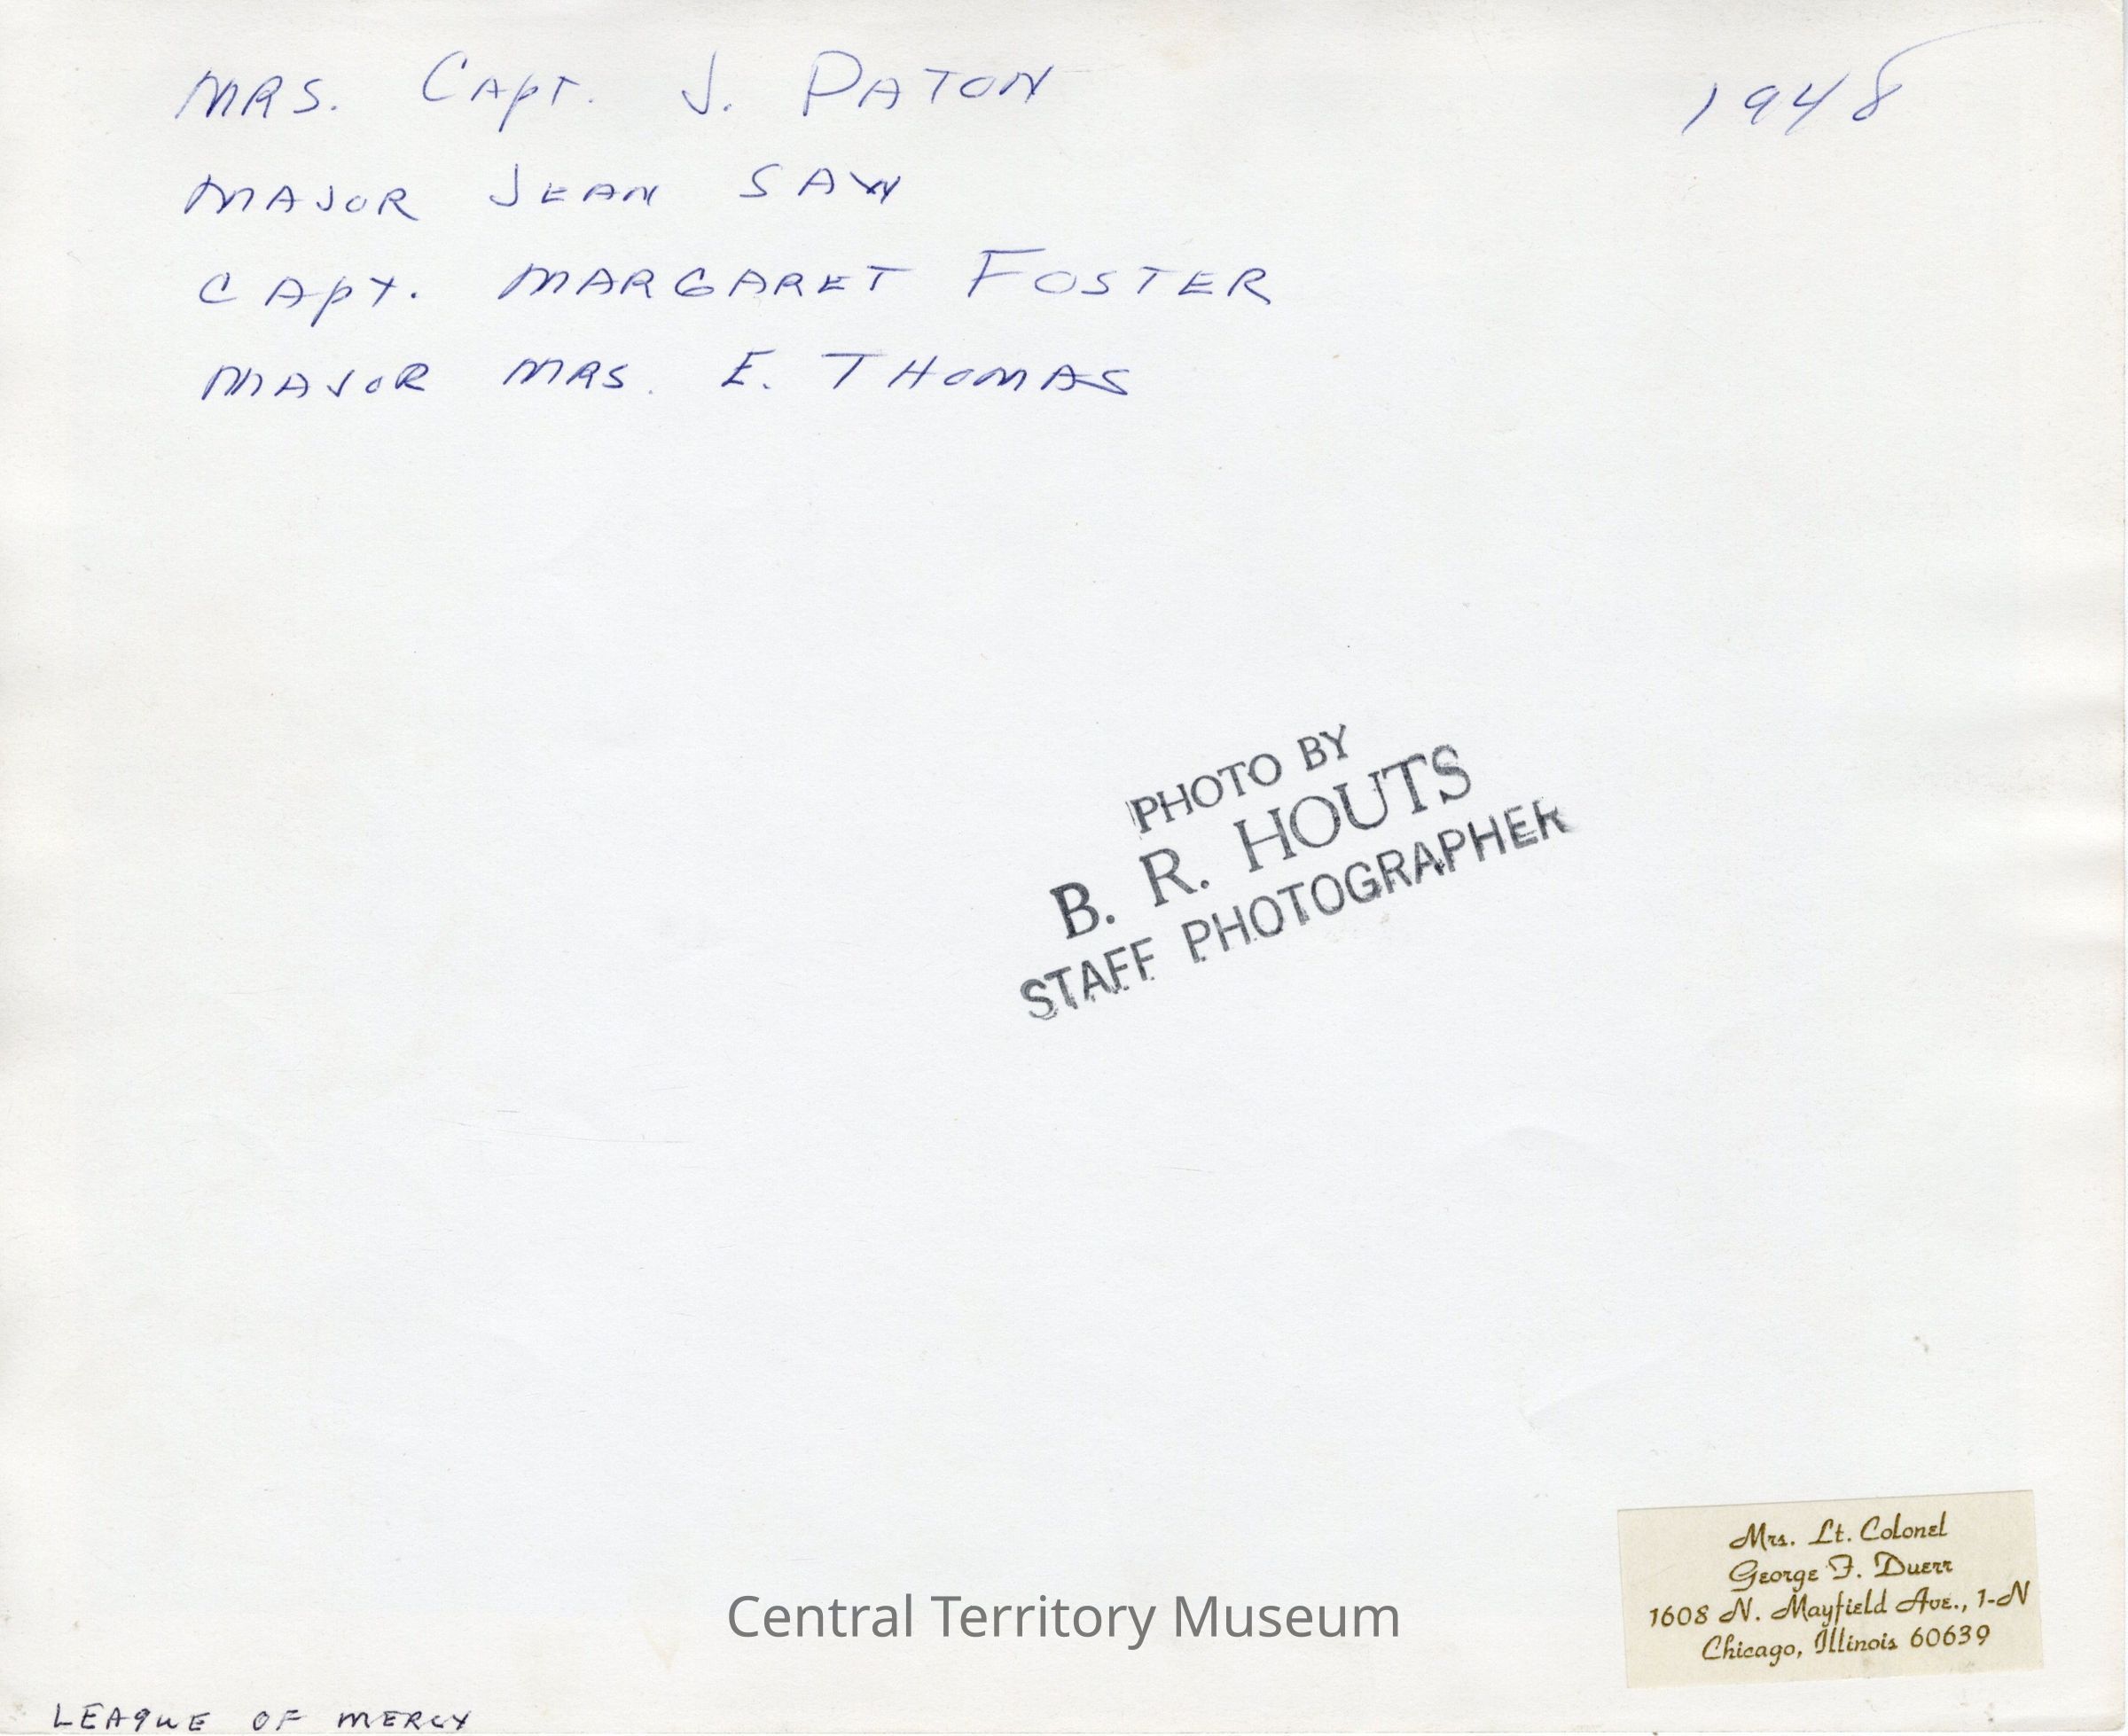 MRS. CAPT. J. PATON
1948
MAJOR JEAN SAW
CAPT. MARGARET FOSTER
MAJOR MRS. E. THOMAS
PHOTO BY
B. R. HOUTS
STAFF PHOTOGRAPHER
Mrs. Lt. Colonel
George F. Duerr
1608 N. Mayfield Ave., 1-N
Chicago, Illinois 60639
Central Territory Museum
LEAGUE OF MERCY